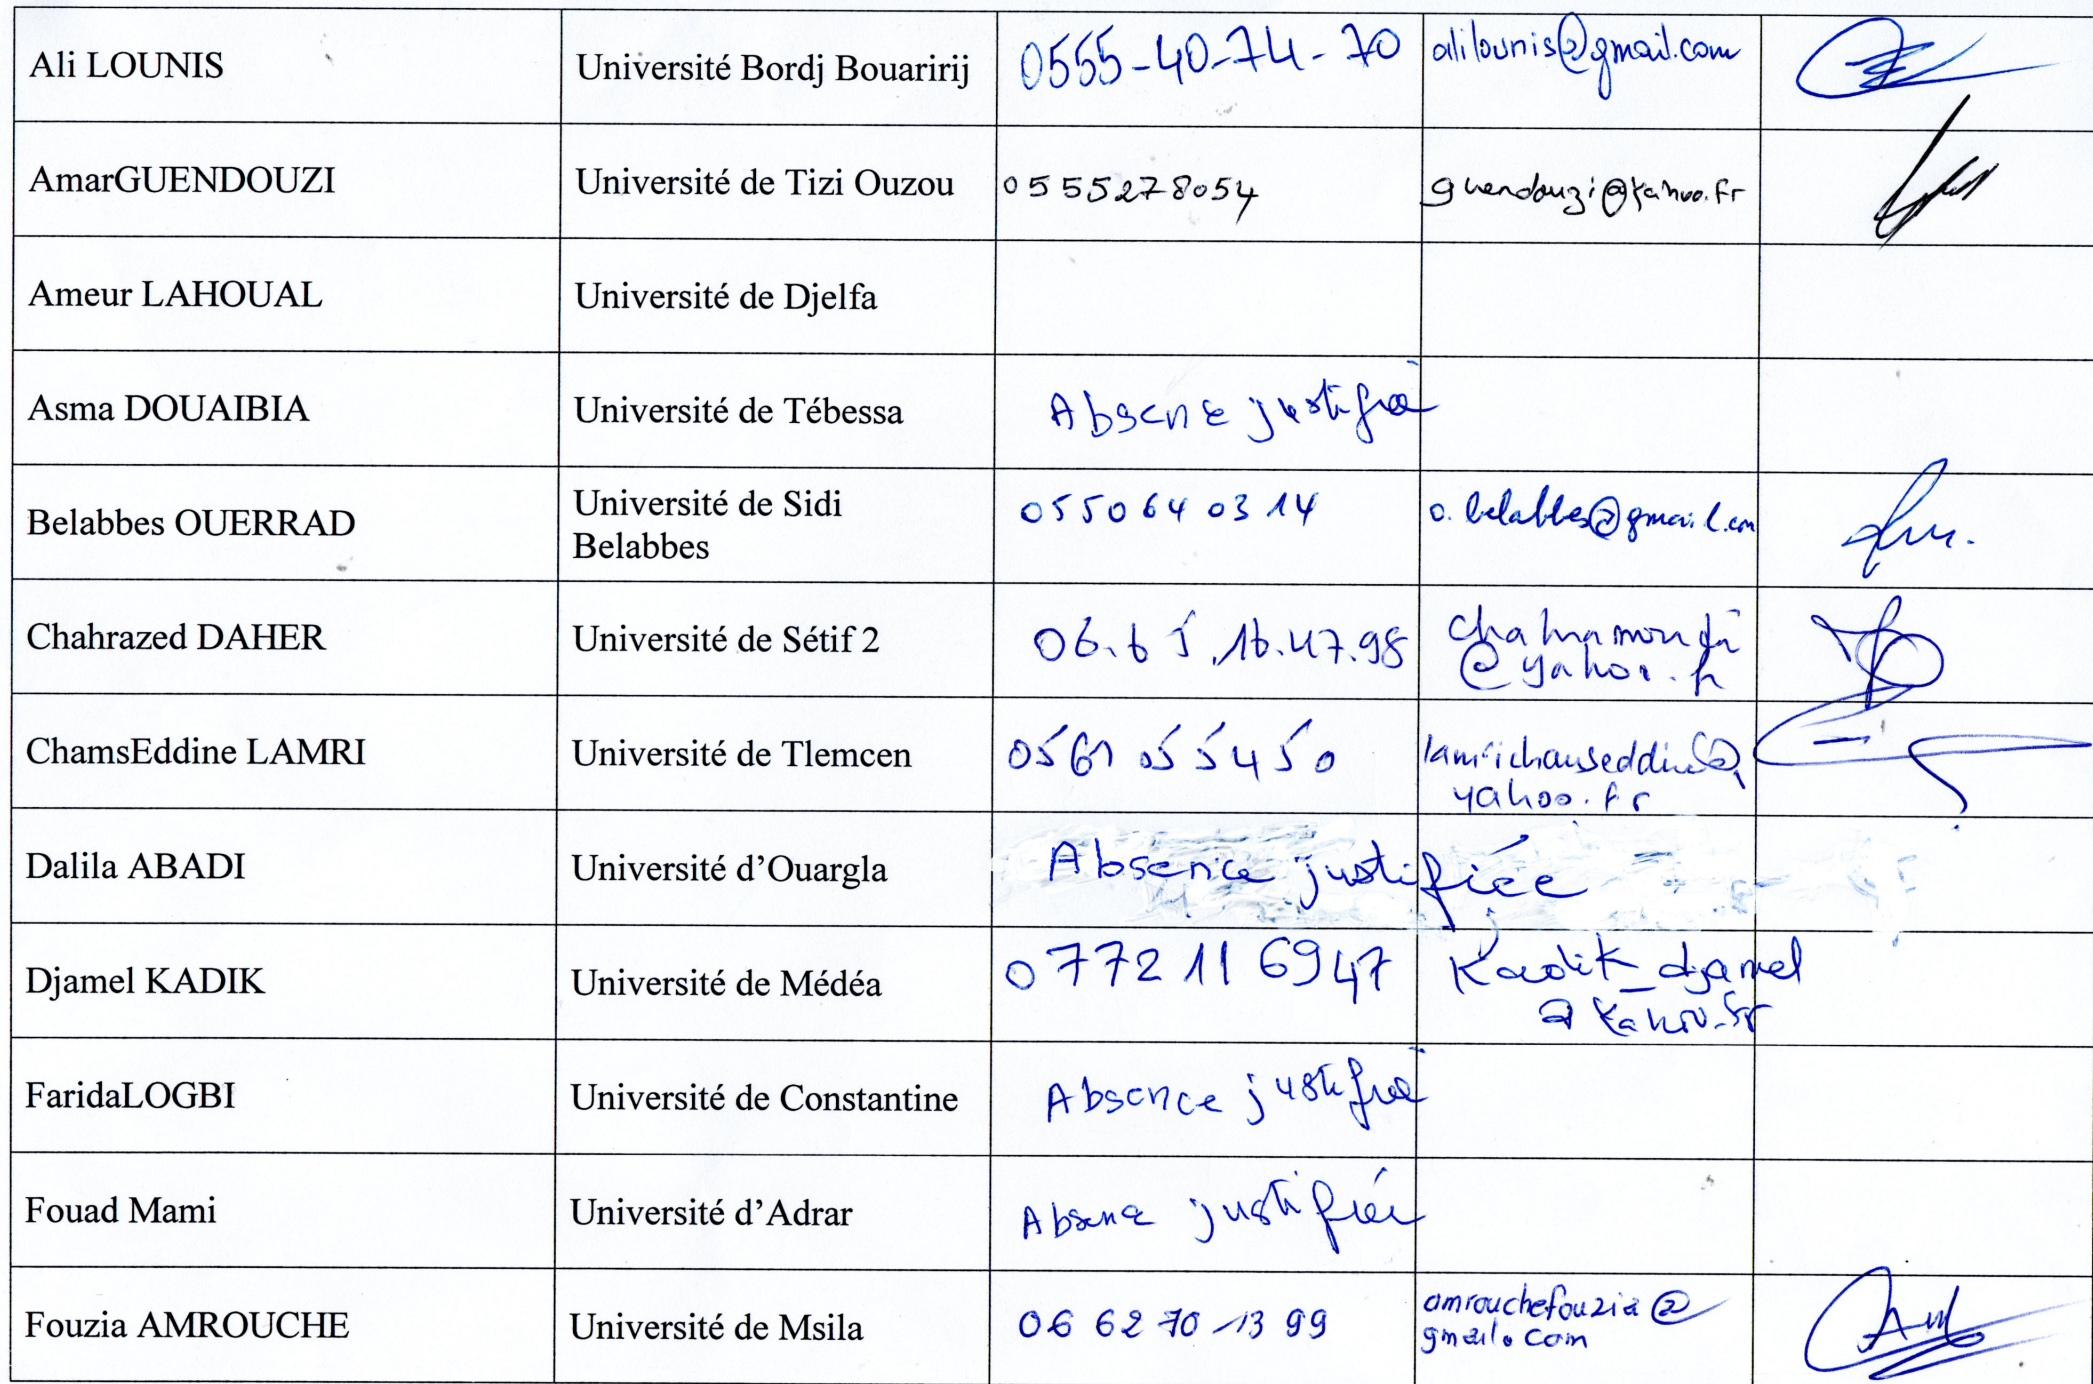 Ali LOUNIS Université Bordj Bouaririj 0555-40-74-70 alilounis@gmail.com
AmarGUENDOUZI Université de Tizi Ouzou 0555278054 guendouzi@yahoo.fr
Ameur LAHOUAL Université de Djelfa
Asma DOUAIBIA Université de Tébessa Absence justifiée
Belabbes OUERRAD Université de Sidi Belabbes 0550640314 o.belabbes@gmail.com
Chahrazed DAHER Université de Sétif 2 06.65.16.47.98
@yahoo.fr
ChamsEddine LAMRI Université de Tlemcen 0561055450 lamrichamseddine@
yahoo.fr
Dalila ABADI Université d’Ouargla Absence justifiée
Djamel KADIK Université de Médéa 0772116947 Kadik_djamel
@yahoo.fr
FaridaLOGBI Université de Constantine Absence justifiée
Fouad Mami Université d’Adrar Absence justifiée
Fouzia AMROUCHE Université de Msila 06 62 70 13 99 amrouchefouzia@
gmail.com